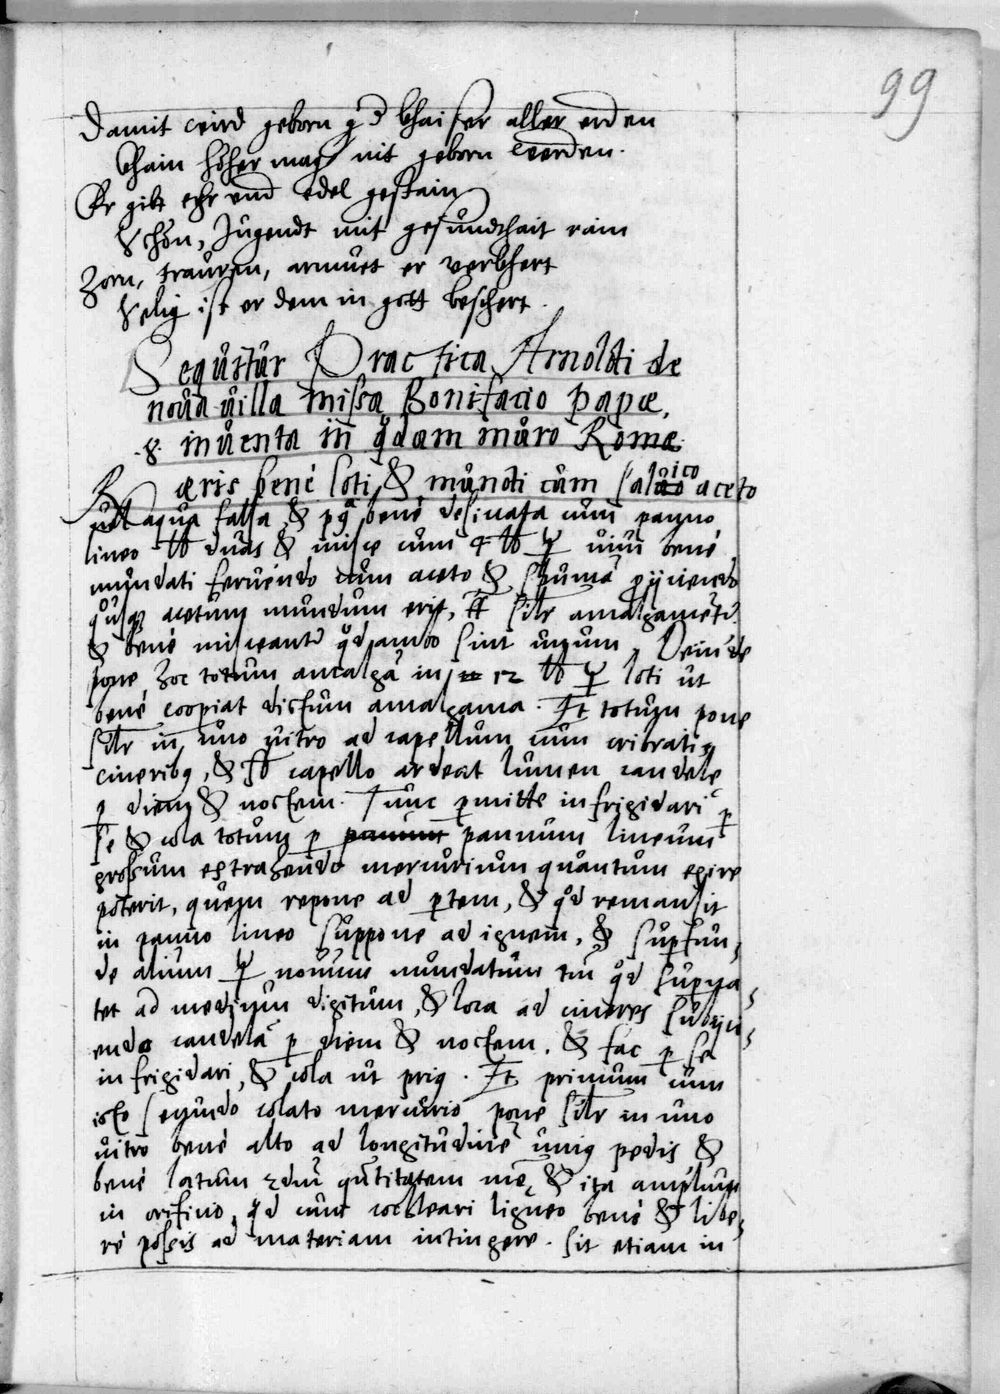 99
Damit wird geborn ꝗ d khaiser aller erden
khain höher mag nit geborn werden.
Er gibt ehr und edel gestain
Schön, Jugendt mit gesundthait rain
Zorn, trauren, armuet er verkhert
Selig ist er dem in gott beschert.
Sequitur Practica Arnoldi de
nova villa missa Bonifacio papæ
.8. inventa in qdam muro Romæ.
℞ æris bene loti & mundi cum salico aceto
vel aqua salsa & bene desicata cum panno
lineo ℔ duas & misce cum 4 ℔ ☿ vivi bene
mundati fervendo cum aceto & spumā
acetum mundum erit, simul amalgament
& bene misceant qd ambo sint unum. Deinde
pone hoc totum amalgā in 12 ℔ ☿ loti ut
bene coopiat dictum amalgama. Et totum pone
silr in uno vitro ad capellum cum cribratis
cineribꝯ, & sb capello ardeat lumen candelæ
ꝑ diem & noctem. Tunc ꝑmitte infrigidari ꝑ
se & cola totum ꝑ pannum pannum lineum
grossum extrahendo mercurium quantum exire
poterit, quem repone ad ꝑtem, & qd remansit
in panno lineo suppone ad ignem, & supfun,
de alium ☿ novum mundatum tm qd supna,
tet ad medium digitum, & loca ad cineres subiici,
endo candelā ꝑ diem & noctem, & fac ꝑ se
infrigidari, & cola ut priꝯ. Et primum cum
isto secundo colato mercurio pone silr in uno
vitro bene alto ad longitudinē uniꝯ pedis &
bene latum 2dm qntitatem mē, & ita amplum
in orificio, qd cum cochleari ligneo bene & libe,
re possis ad materiam intingere. sit etiam in